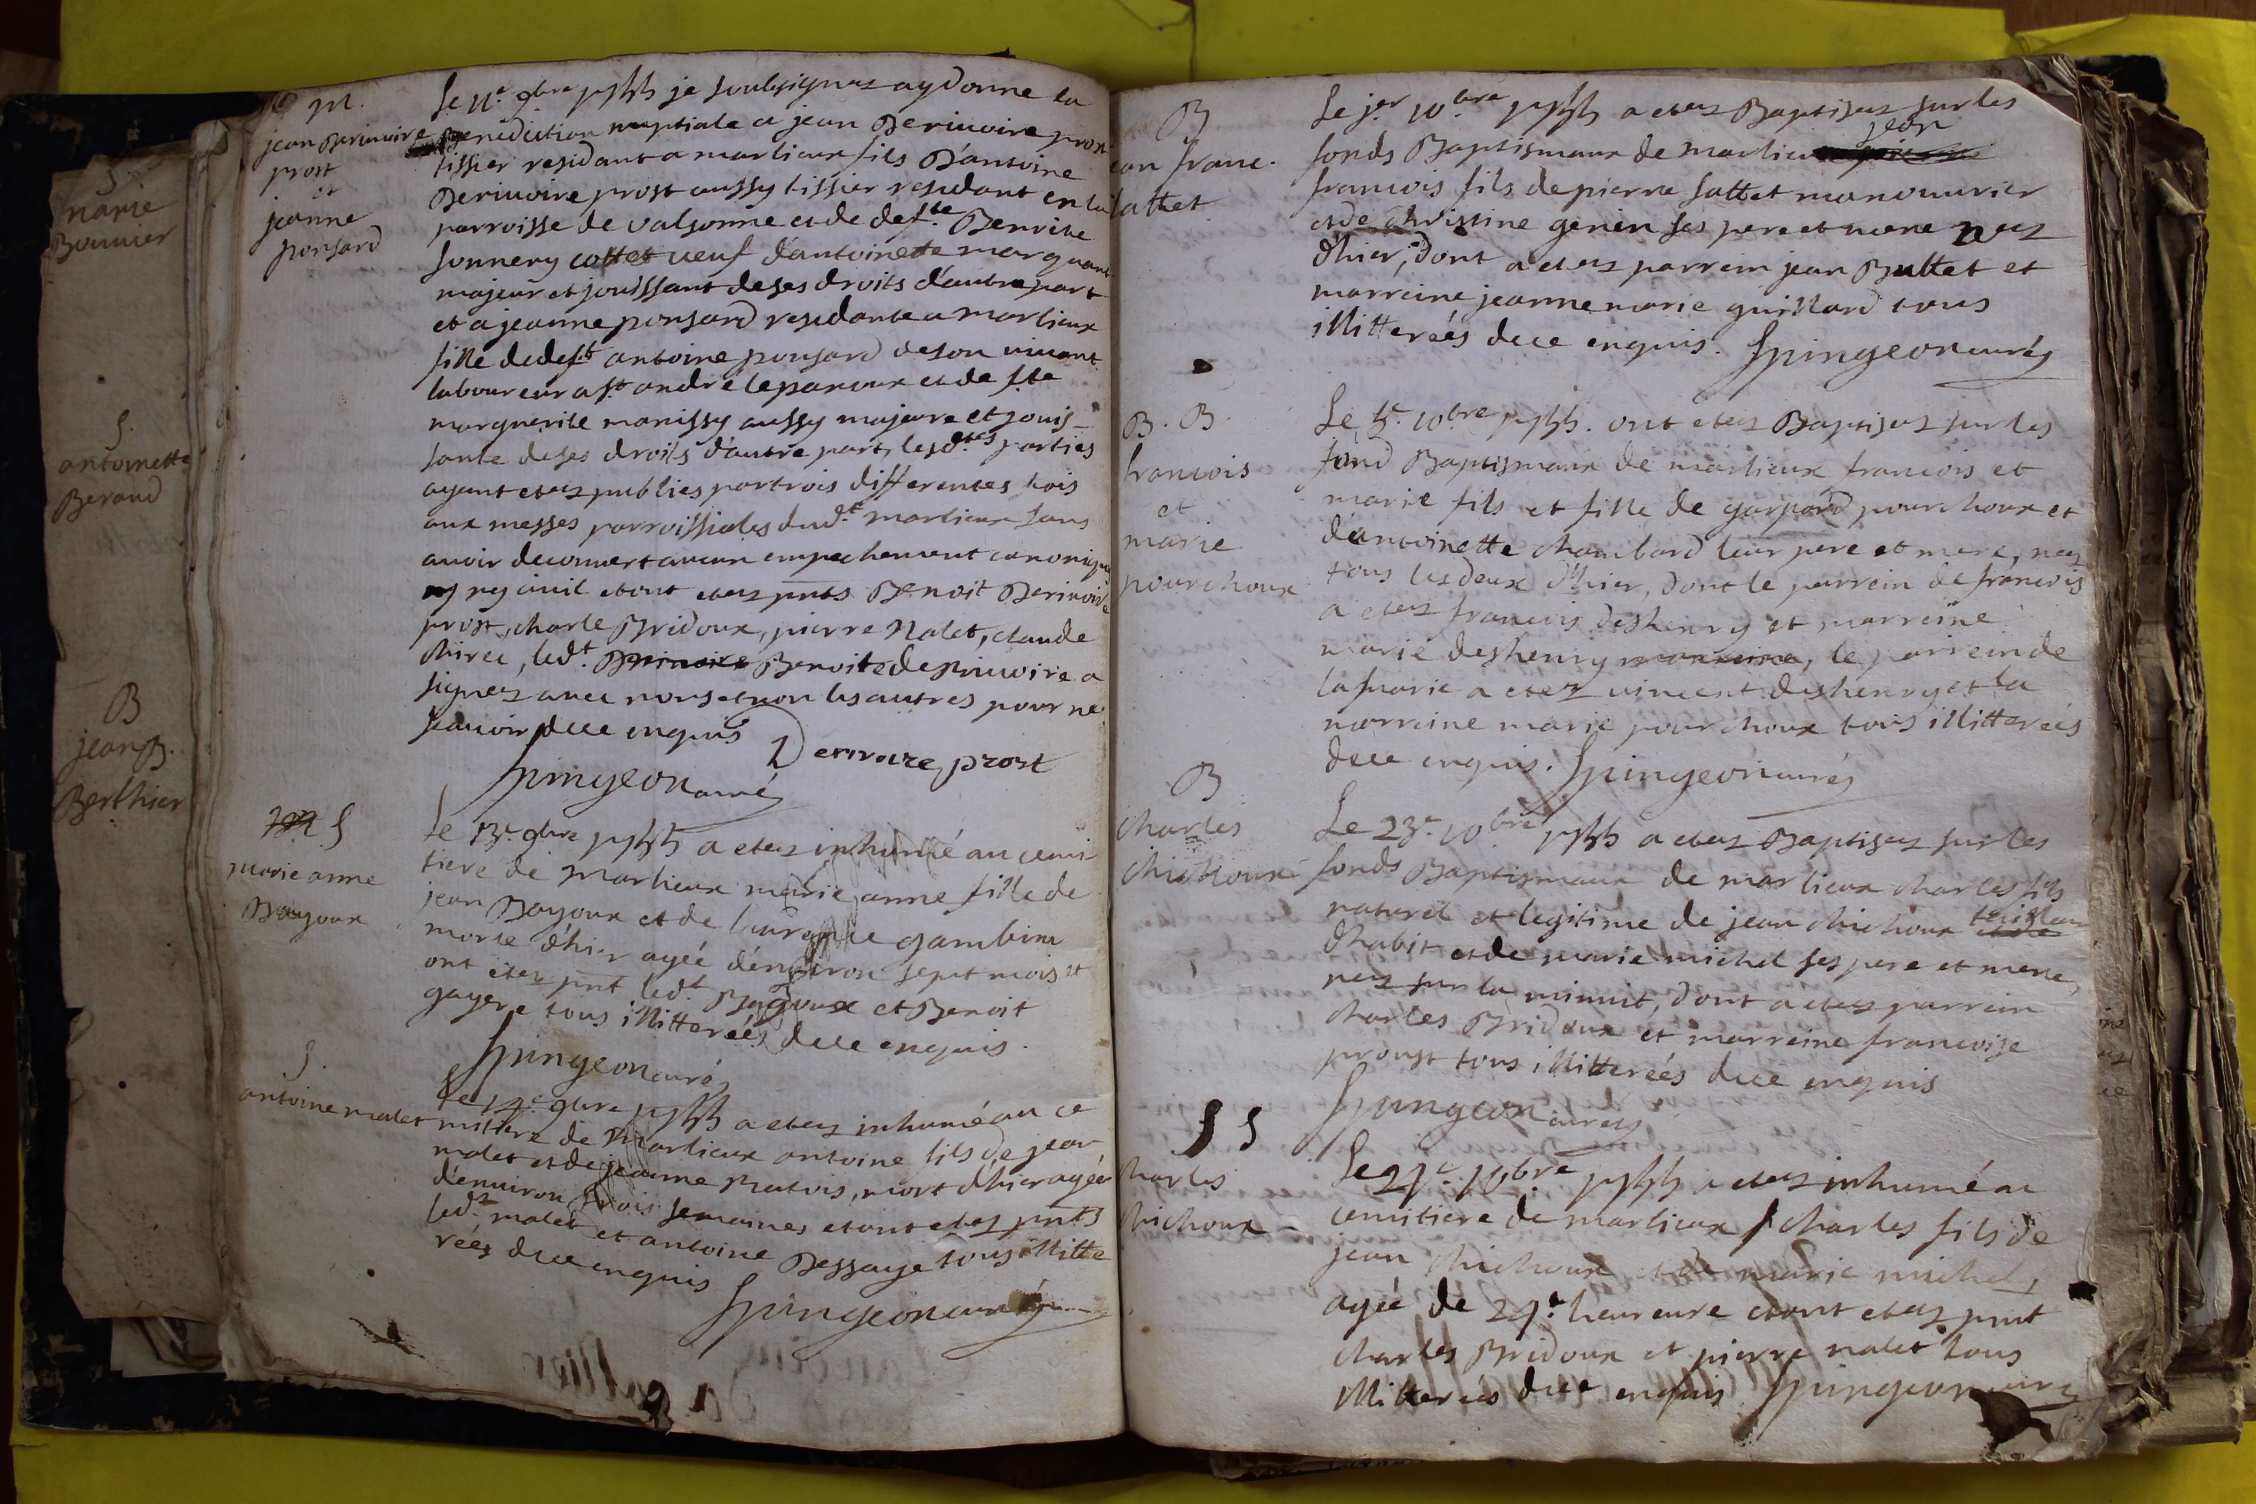 S
marie
Bouvier
S.
antoinette
Beraud
B
jean B.
Berthier
M.
jean Derivoire
prost
et
jeanne
ponsard
Le 11e 9bre je soubsignez ay donne la
Benediction nuptiale a jean Derivoire prost
tissier residant a marlieux fils D'antoine
Derivoire prost aussy tissier residant en la
parroisse de valsonne et de defte. Benoite
Sonnery cottet veuf d'antoinette marquant
majeur et jouissant de ses droits d'autre part
et a jeanne ponsard residante a marlieux
fille de defft antoine ponsard de son vivant
laboureur a St. andré le panoux et de fte
marguerite manissy aussy majeure et jouis-
sante de ses droits d'autre part, lesd.tes parties
ayant etez publies par trois differentes fois
aux messes parroissiales dud.t marlieux sans
avoir decouvert aucun empechement canonique
ny civil et ont etez pnts Benoit Derivoire
prost, charle Bridoux, pierre Nalet, claude
chirec, led.t Benoite de Rivoire a
signez avec nous et non les autres pour ne
scavoir de ce enquis
Derivoire prost
Spingeon curé
S
marie anne
Bayoux
Le 13e 9bre a etez inhumé au cemi
tiere de Marlieux marie anne fille de
jean Bayoux et de laurence gambin
morte d'hier agée d'environ sept mois et
ont etez pnt led.t Bayoux et Benoit
gayere tous illitterées de ce enquis.
Spingeon curé
S.
antoine malet
Le 9bre a etez inhumé au ce
mitiere de Marlieux antoine fils de jean
malet et de jeanne Batois, mort d'hier agée
d'environ trois semaines et ont etez pnts
led.t malet et antoine Dessaye tous illitte
rées de ce enquis
Spingeon curé
B
jean franc.
Sattet
Le jer 10bre a etez Baptisez sur les
fonds Baptismaux de marlieux jean
francois fils de pierre Sattet manouvrier
et de christine genin ses pere et mere nez
d'hier, dont a etez parrein jean Buttet et
marreine jeanne marie guillard tous
illitterées de ce enquis. Spingeon curéz
B. B.
francois
et
marie
pourchoux
Le 10bre ont etez Baptisez sur les
fond Baptismaux de marlieux francois et
marie fils et fille de gaspard pourchoux et
d'antoinette chambard leur pere et mere, nez
tous les deux d'hier, dont le parrein de francois
a etez francois deshenry et marreine
marie deshenry marreine, le parrein de
la marie a etez vincent deshenry et la
marreine marie pourchoux tous illitterées
de ce enquis. Spingeon curéz
B
charles
chichoux
Le 23e. 10bre a etez Baptisez sur les
fonds Baptismaux de marlieux charles fils
naturel et legitime de jean chichoux tailleur
d'habit et de marie michel ses pere et mere,
nez sur la minuit, dont a etez parrein
charles Bridoux et marreine francoise
proust tous illitterées de ce enquis
Spingeon curéz
S S
charles
chichoux
Le 10bre a etez inhumé au
cemitiere de marlieux charles fils de
jean chichoux et de marie michel,
agée de heureure et ont etez pnnt
charles Bridoux et pierre nalet tous
illitterées de ce enquis Spingeon curéz